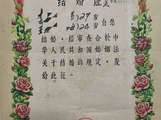 结婚证
27岁
24岁 自愿
结婚，经审查合于中
华人民共和国婚姻法
关于结婚的规定，发
给此证。